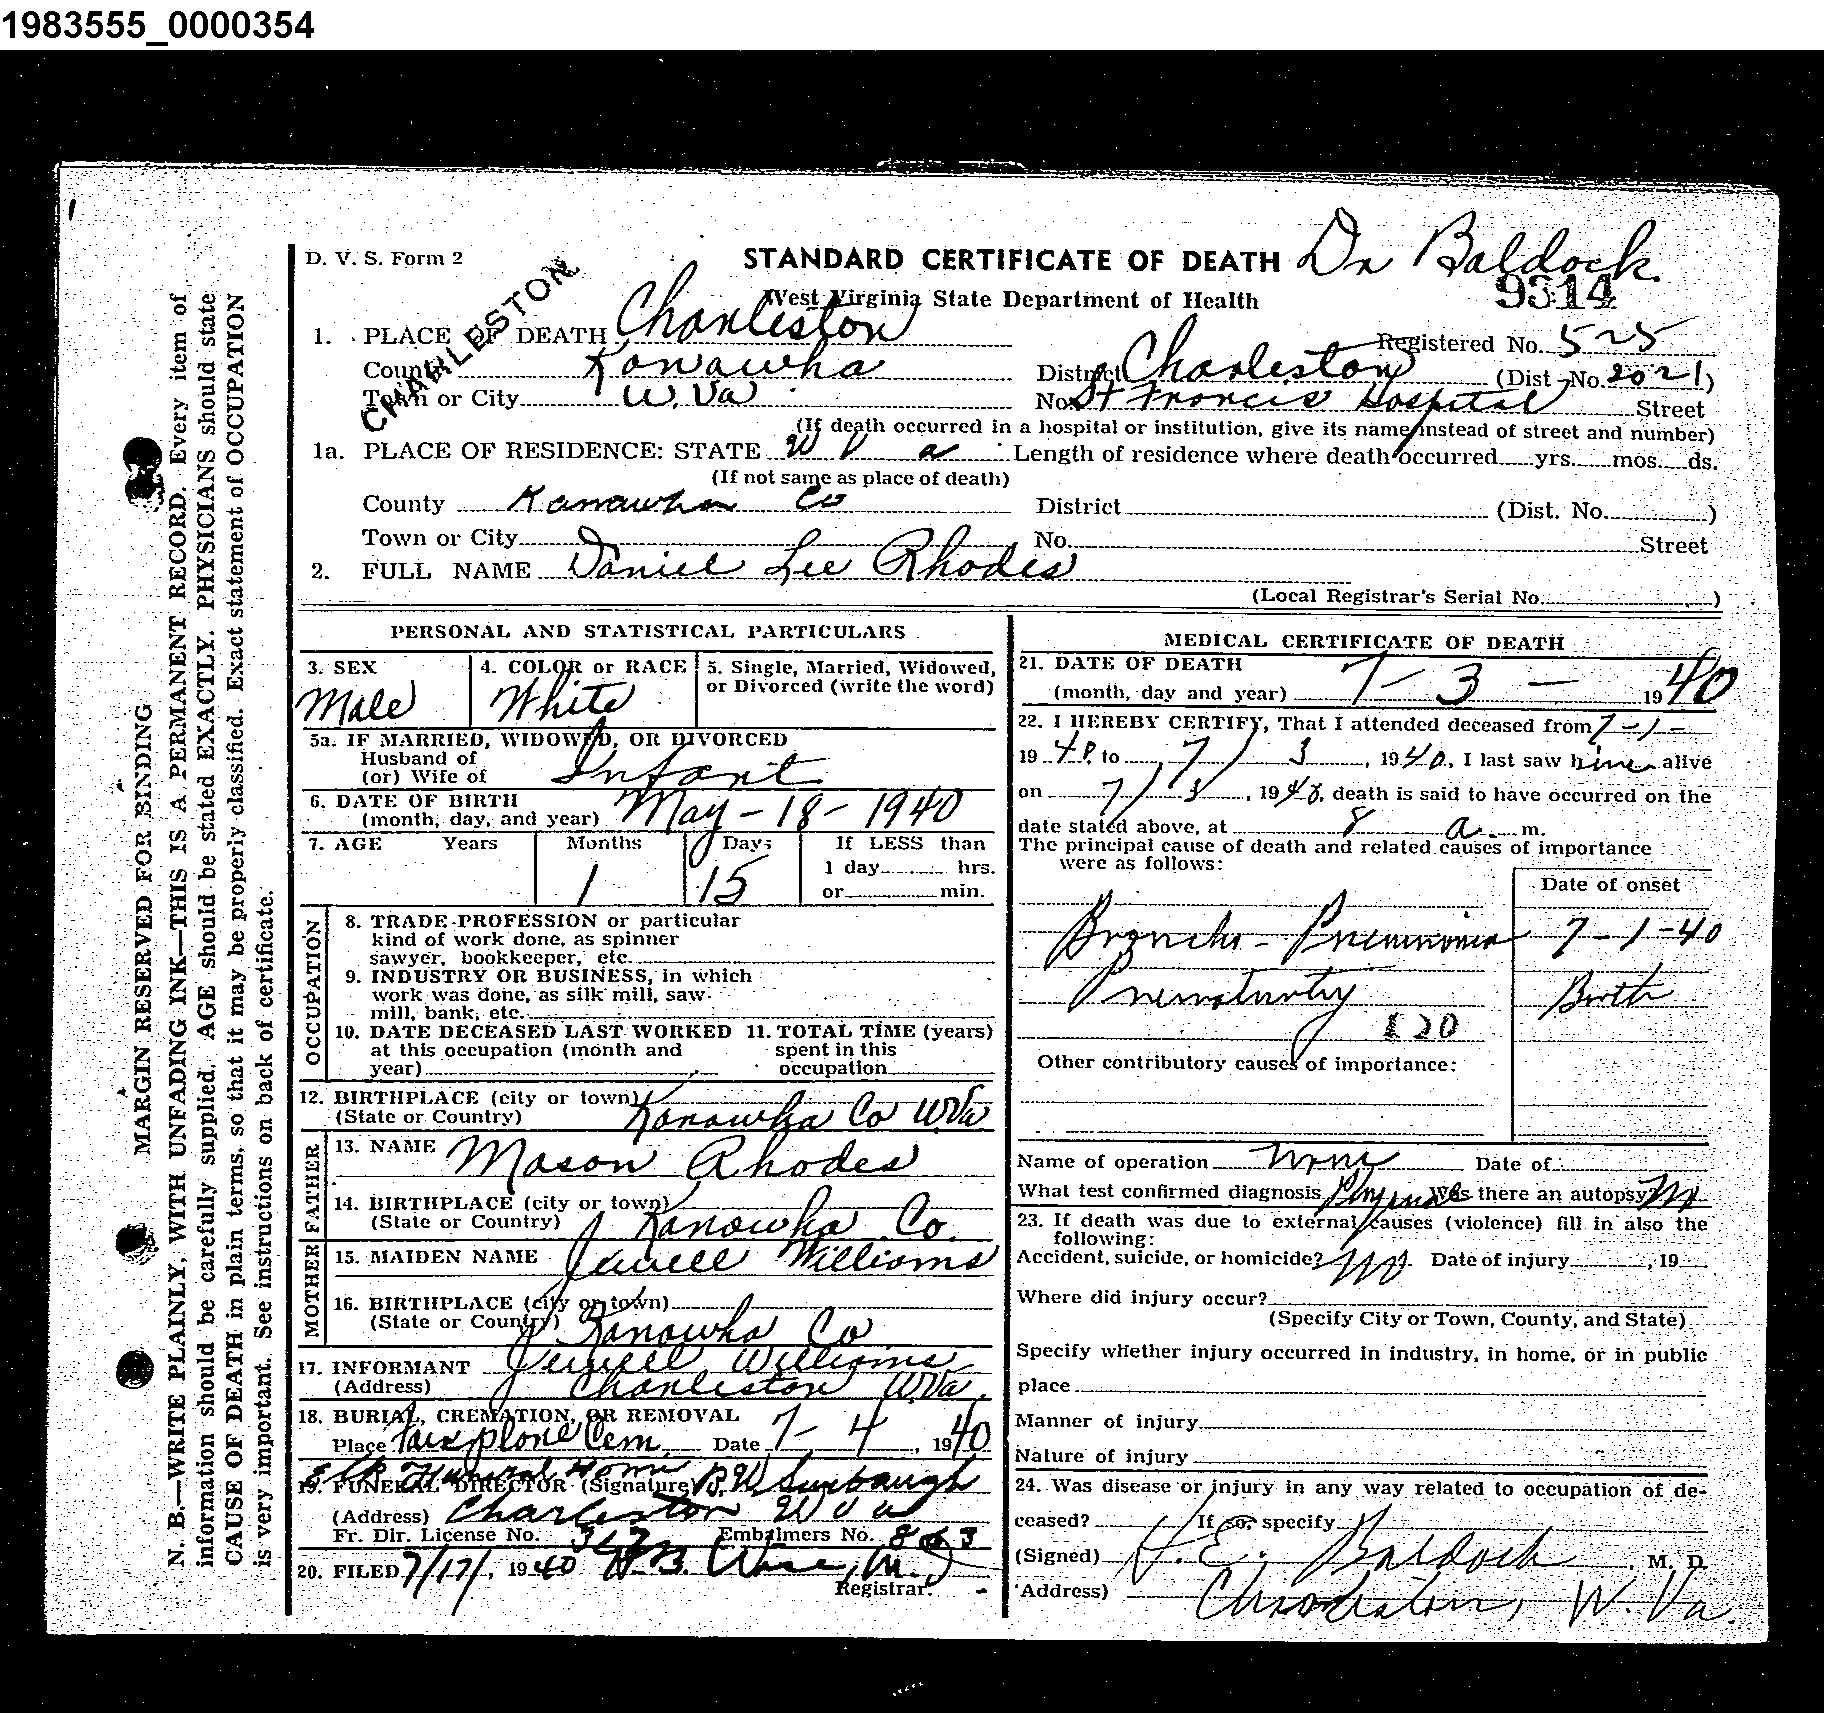 1983555_0000354
D. V. S. Form 2
STANDARD CERTIFICATE OF DEATH Dr Baldock
West Virginia State Department of Health
9314
CHARLESTON
1. PLACE OF DEATH Charleston
Registered No. 525
County Kanawha District Charleston (Dist. No. 2021)
Town or City W. Va No. St Francis Hospital Street
(If death occurred in a hospital or institution, give its name instead of street and number)
1a. PLACE OF RESIDENCE: STATE W Va Length of residence where death occurred yrs. mos. ds.
(If not same as place of death)
County Kanawha Co District (Dist. No. )
Town or City No. Street
2. FULL NAME Daniel Lee Rhodes
(Local Registrar's Serial No. )
MARGIN RESERVED FOR BINDING
N. B.—WRITE PLAINLY, WITH UNFADING INK—THIS IS A PERMANENT RECORD. Every item of
information should be carefully supplied. AGE should be stated EXACTLY. PHYSICIANS should state
CAUSE OF DEATH in plain terms, so that it may be properly classified. Exact statement of OCCUPATION
is very important. See instructions on back of certificate.
PERSONAL AND STATISTICAL PARTICULARS
3. SEX
Male
4. COLOR or RACE
White
5. Single, Married, Widowed,
or Divorced (write the word)
5a. IF MARRIED, WIDOWED, OR DIVORCED
Husband of
(or) Wife of Infant
6. DATE OF BIRTH
(month, day, and year) May-18-1940
7. AGE Years Months Days If LESS than
1 day hrs.
1 15 or min.
OCCUPATION
8. TRADE PROFESSION or particular
kind of work done, as spinner
sawyer, bookkeeper, etc.
9. INDUSTRY OR BUSINESS, in which
work was done, as silk mill, saw-
mill, bank, etc.
10. DATE DECEASED LAST WORKED
at this occupation (month and
year)
11. TOTAL TIME (years)
spent in this
occupation
12. BIRTHPLACE (city or town)
(State or Country) Kanawha Co W.Va
FATHER
13. NAME Mason Rhodes
14. BIRTHPLACE (city or town)
(State or Country) Kanawha Co.
MOTHER
15. MAIDEN NAME Jewell Williams
16. BIRTHPLACE (city or town)
(State or Country) Kanawha Co
17. INFORMANT Jewell Williams
(Address) Charleston W.Va.
18. BURIAL, CREMATION, OR REMOVAL
Place Cem. Date 7-4, 1940
Elk Funeral Home
19. FUNERAL DIRECTOR (Signature)
(Address) Charleston W Va
Fr. Dir. License No. Embalmers No.
20. FILED 7/17/, 1940
Registrar.
MEDICAL CERTIFICATE OF DEATH
21. DATE OF DEATH
(month, day and year) 7-3- 1940
22. I HEREBY CERTIFY, That I attended deceased from 7-1-
1940, to 7/3, 1940, I last saw him alive
on 7/3, 1940, death is said to have occurred on the
date stated above, at 8 a. m.
The principal cause of death and related causes of importance
were as follows:
Date of onset
Broncho-Pneumonia 7-1-40
Prematurity Birth
120
Other contributory causes of importance:
Name of operation None Date of
What test confirmed diagnosis Physical Was there an autopsy? No
23. If death was due to external causes (violence) fill in also the
following:
Accident, suicide, or homicide? No. Date of injury , 19
Where did injury occur?
(Specify City or Town, County, and State)
Specify whether injury occurred in industry, in home, or in public
place
Manner of injury
Nature of injury
24. Was disease or injury in any way related to occupation of de-
ceased? If so, specify
(Signed) Baldock, M. D.
(Address) Charleston, W. Va.